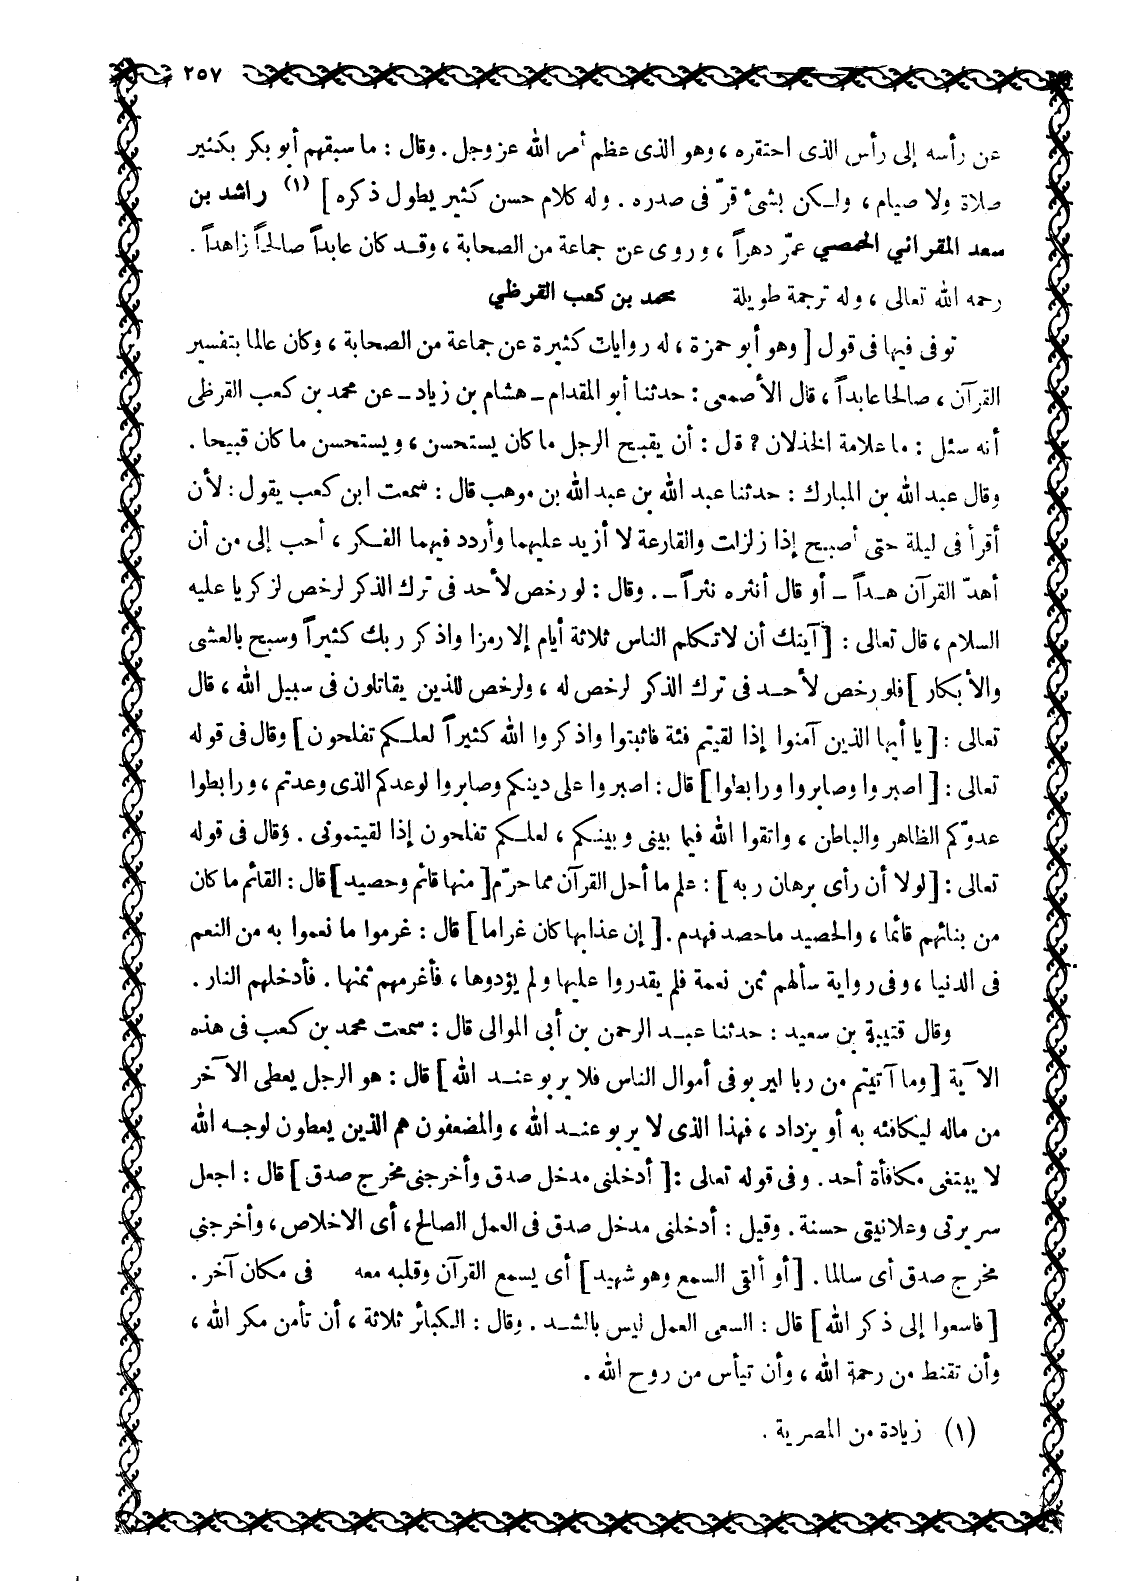 ٢٥٧
عن رأسه إلى رأس الذى احتقره ، وهو الذى عظم أمر الله عز وجل . وقال : ما سبقهم أبو بكر بكثير
صلاة ولا صيام ، ولكن بشئ قرّ فى صدره . وله كلام حسن كثير يطول ذكره ] (١) راشد بن
سعد المقرائي الحمصي عمّر دهراً ، وروى عن جماعة من الصحابة ، وقد كان عابداً صالحاً زاهداً .
رحمه الله تعالى ، وله ترجمة طويلة محمد بن كعب القرظي
توفى فيها فى قول [ وهو أبو حمزة ، له روايات كثيرة عن جماعة من الصحابة ، وكان عالما بتفسير
القرآن ، صالحا عابداً ، قال الأصمعى : حدثنا أبو المقدام ـ هشام بن زياد ـ عن محمد بن كعب القرظى
أنه سئل : ما علامة الخذلان ؟ قال : أن يقبح الرجل ما كان يستحسن ، ويستحسن ما كان قبيحا .
وقال عبد الله بن المبارك : حدثنا عبد الله بن عبد الله بن موهب قال : سمعت ابن كعب يقول : لأن
أقرأ فى ليلة حتى أصبح إذا زلزات والقارعة لا أزيد عليهما وأردد فيهما الفكر ، أحب إلى من أن
أهدّ القرآن هداً ـ أو قال أنثره نثراً ـ . وقال : لو رخص لأحد فى ترك الذكر لرخص لزكريا عليه
السلام ، قال تعالى : [ آيتك أن لا تكلم الناس ثلاثة أيام إلا رمزا واذكر ربك كثيراً وسبح بالعشى
والأبكار ] فلو رخص لأحد فى ترك الذكر لرخص له ، ولرخص للذين يقاتلون فى سبيل الله ، قال
تعالى : [ يا أيها الذين آمنوا إذا لقيتم فئة فاثبتوا واذكروا الله كثيراً لعلكم تفلحون ] وقال فى قوله
تعالى : [ اصبروا وصابروا ورابطوا ] قال : اصبروا على دينكم وصابروا لوعدكم الذى وعدتم ، ورابطوا
عدوّكم الظاهر والباطن ، واتقوا الله فيما بينى وبينكم ، لعلكم تفلحون إذا لقيتمونى . وقال فى قوله
تعالى : [ لولا أن رأى برهان ربه ] : علم ما أحل القرآن مما حرّم [ منها قائم وحصيد ] قال : القائم ما كان
من بنائهم قائما ، والحصيد ما حصد فهدم . [ إن عذابها كان غراما ] قال : غرموا ما نعموا به من النعم
فى الدنيا ، وفى رواية سألهم ثمن نعمة فلم يقدروا عليها ولم يؤدوها ، فأغرمهم ثمنها . فأدخلهم النار .
وقال قتيبة بن سعيد : حدثنا عبد الرحمن بن أبى الموالى قال : سمعت محمد بن كعب فى هذه
الآية [ وما آتيتم من ربا ليربو فى أموال الناس فلا يربو عند الله ] قال : هو الرجل يعطى الآخر
من ماله ليكافئه به أو يزداد ، فهذا الذى لا يربو عند الله ، والمضعفون هم الذين يعطون لوجه الله
لا يبتغى مكافأة أحد . وفى قوله تعالى : [ أدخلنى مدخل صدق وأخرجنى مخرج صدق ] قال : اجعل
سريرتى وعلانيتى حسنة . وقيل : أدخلنى مدخل صدق فى العمل الصالح ، أى الاخلاص ، وأخرجنى
مخرج صدق أى سالما . [ أو ألقى السمع وهو شهيد ] أى يسمع القرآن وقلبه معه فى مكان آخر .
[ فاسعوا إلى ذكر الله ] قال : السعى العمل ليس بالشد . وقال : الكبائر ثلاثة ، أن تأمن مكر الله ،
وأن تقنط من رحمة الله ، وأن تيأس من روح الله .
(١) زيادة من المصرية .